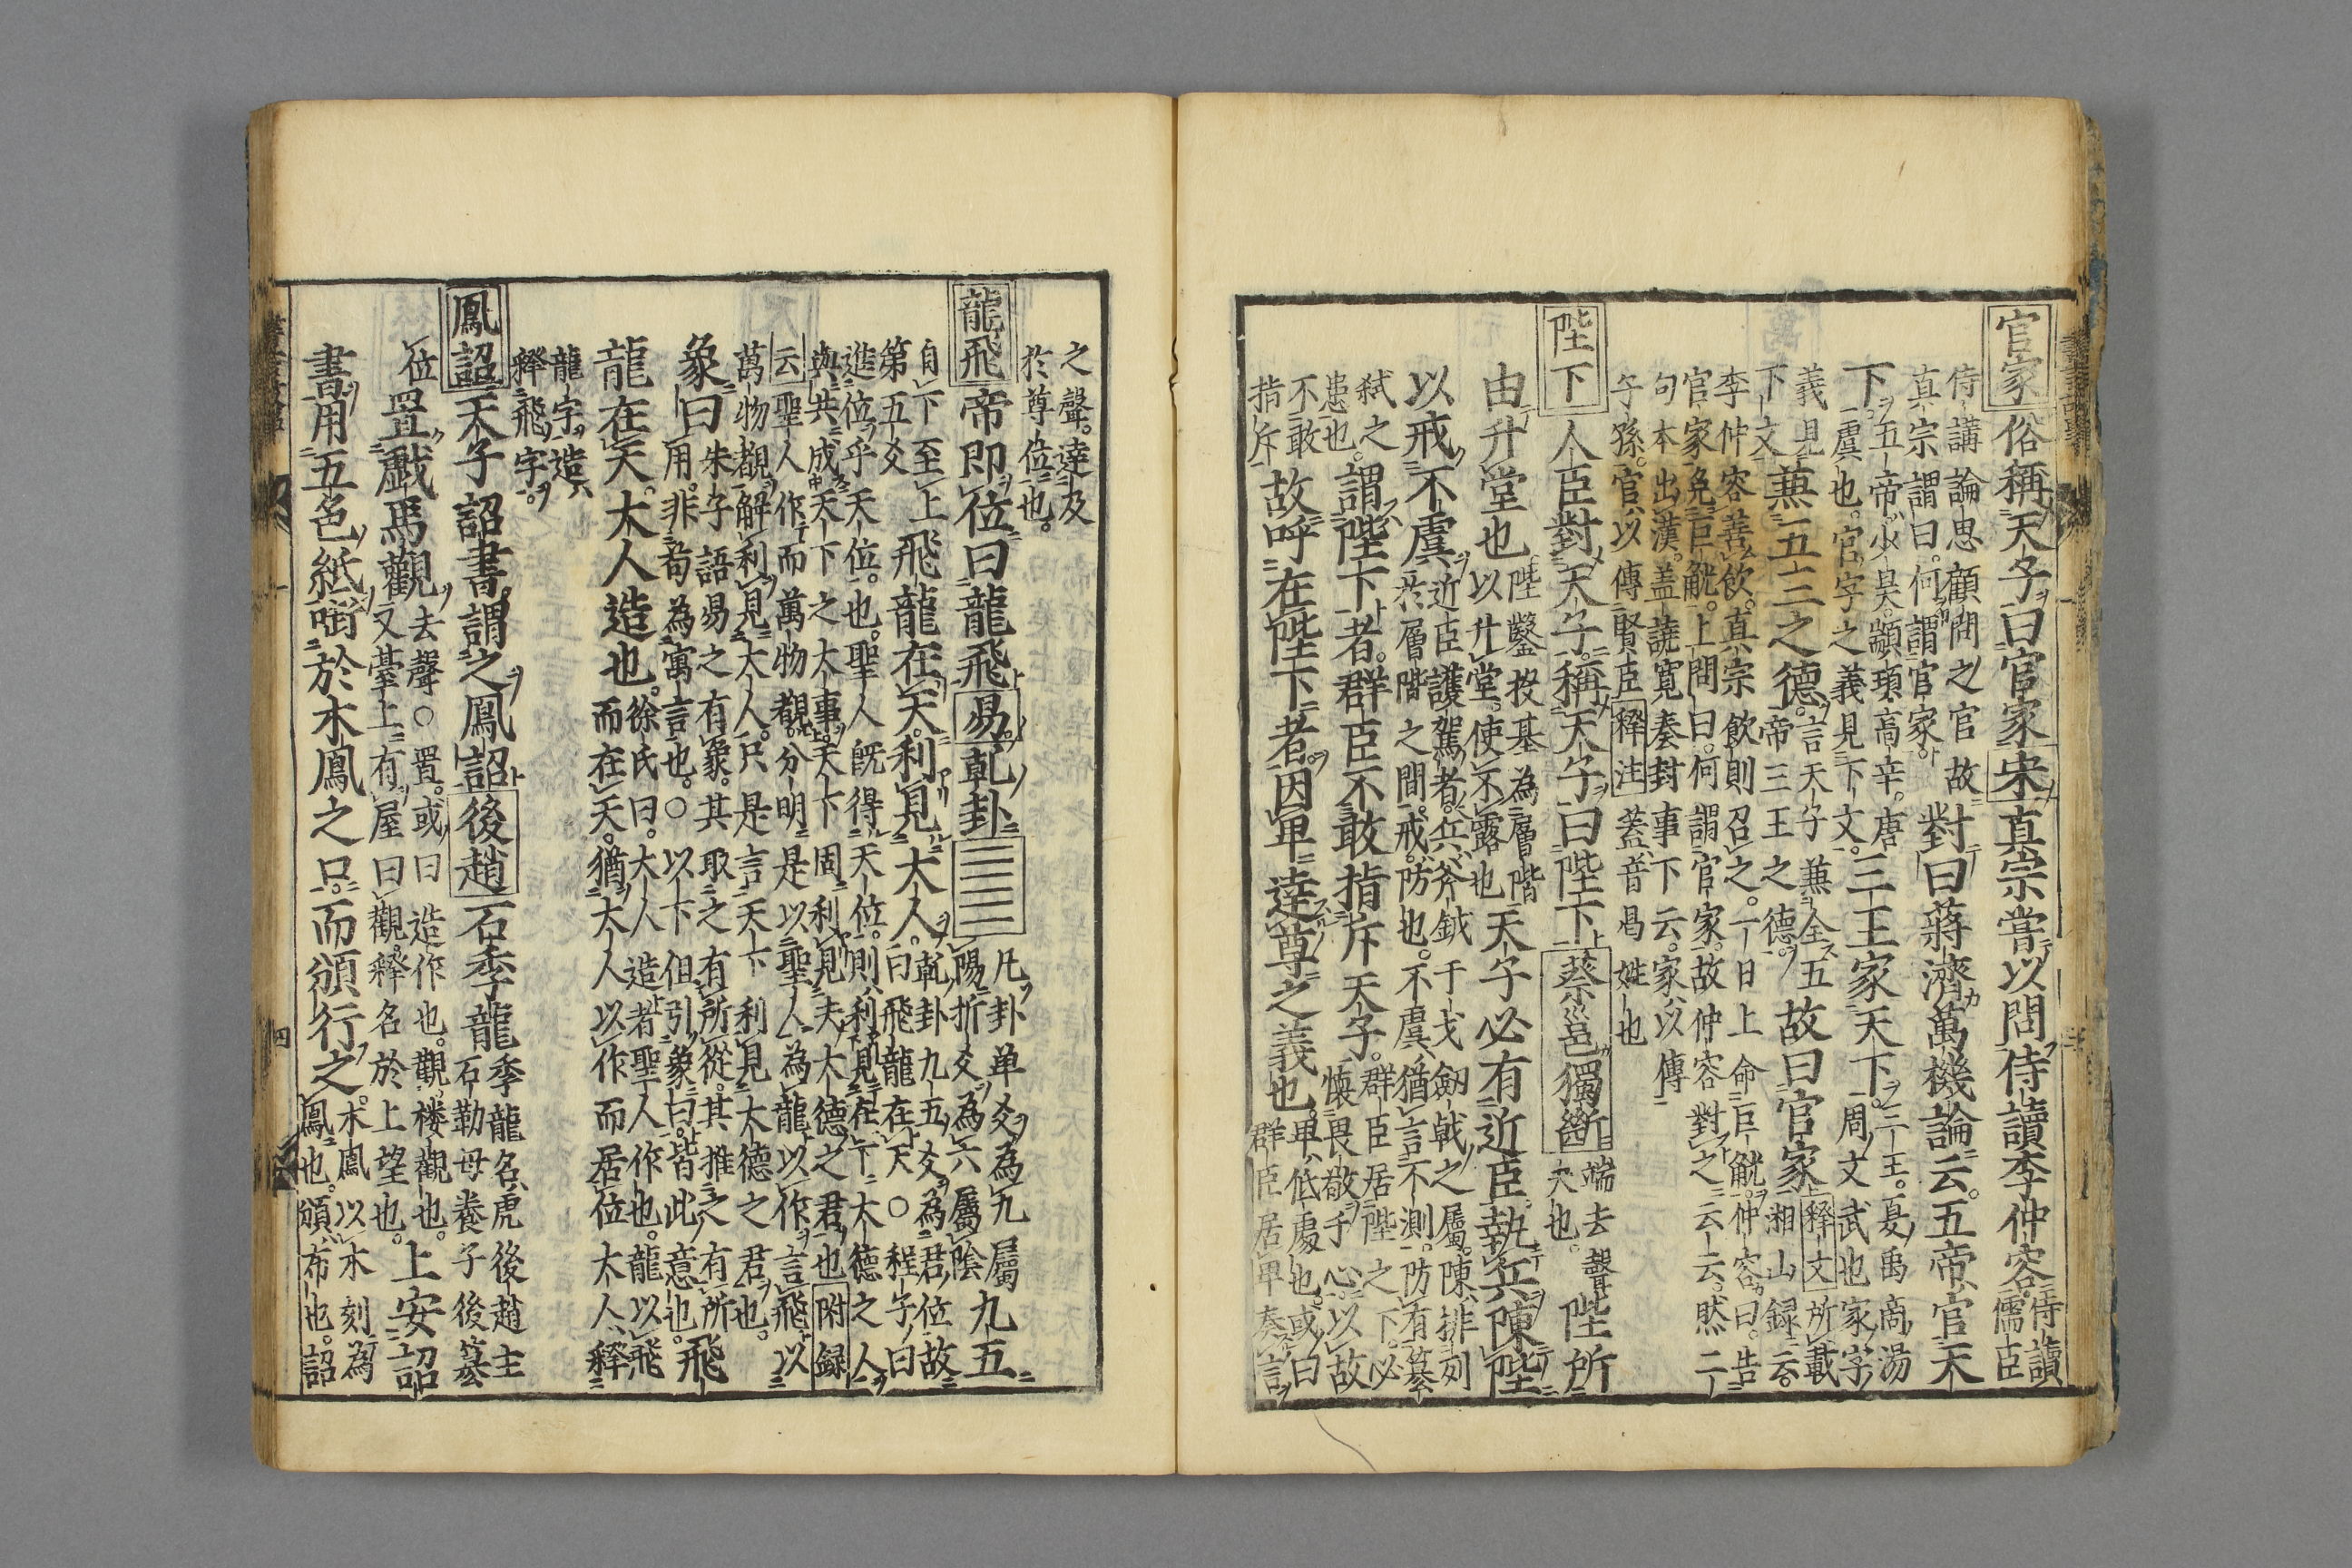 官家 俗稱天子曰官家宋真宗嘗以問侍讀李仲容侍讀儒臣
侍講論思顧問之官故真宗謂曰何謂官家 對曰蔣濟萬機論云五帝官天
下五帝少昊顓頊高辛唐虞也官字之義見下文三王家天下三王夏禹商湯周文武也家字
義見下文兼五三之德言天子兼全五帝三王之德故曰官家釋文所載湘山録云
李仲容善飲真宗飲則召之一日上命巨觥仲容曰告官家免巨觥上問曰何謂官家故仲容對之云云然二
句本出漢蓋饒寬奏封事下云家以傳子孫官以傳賢臣釋注蓋音曷姓也
陛下 人臣對天子稱天子曰陛下蔡邕獨斷端去聲夫也陛所
由升堂也陛鑿投基為層階以升堂使不露也天子必有近臣執兵陳陛
以戒不虞近臣護駕者兵斧鉞干戈劔戟之屬陳排列於層階之間戒防也不虞猶言不測防有篡
弒之患也謂陛下者群臣不敢指斥天子群臣居陛之下必懷畏敬于心以故
不敢指斥故呼在陛下者因卑達尊之義也卑低處也或曰群臣居卑奏言
之聲達及於尊位也
龍飛 帝即位曰龍飛易乾卦☰凡卦单爻為九屬陽折爻為六屬陰九五
自下至上第五爻飛龍在天利見大人乾卦九五爻為君位故曰飛龍在天○程子曰
進位乎天位也聖人既得天位則利見在下大德之人與共成天下之大事天下固利見夫大德之君也附録
云聖人作而萬物覩分明是以聖人為龍以作言飛以萬物覩解利見大人只是言天下利見大德之君也
象曰朱子語易之有象其取之有所從其推之有所用非苟為寓言也○以下但引象曰皆此意也飛
龍在天大人造也徐氏曰大人造者聖人作也龍以飛而在天猶大人以作而居位大人釋
龍字造釋飛字
鳳詔 天子詔書謂之鳳詔後趙石季龍季龍名虎後趙主石勒母養子後篡
位置戲馬觀去聲○置或曰造作也觀楼觀也又臺上有屋曰觀釋名於上望也上安詔
書用五色紙啣於木鳳之口而頒行之木鳳以木刻為鳳也頒布也詔
四